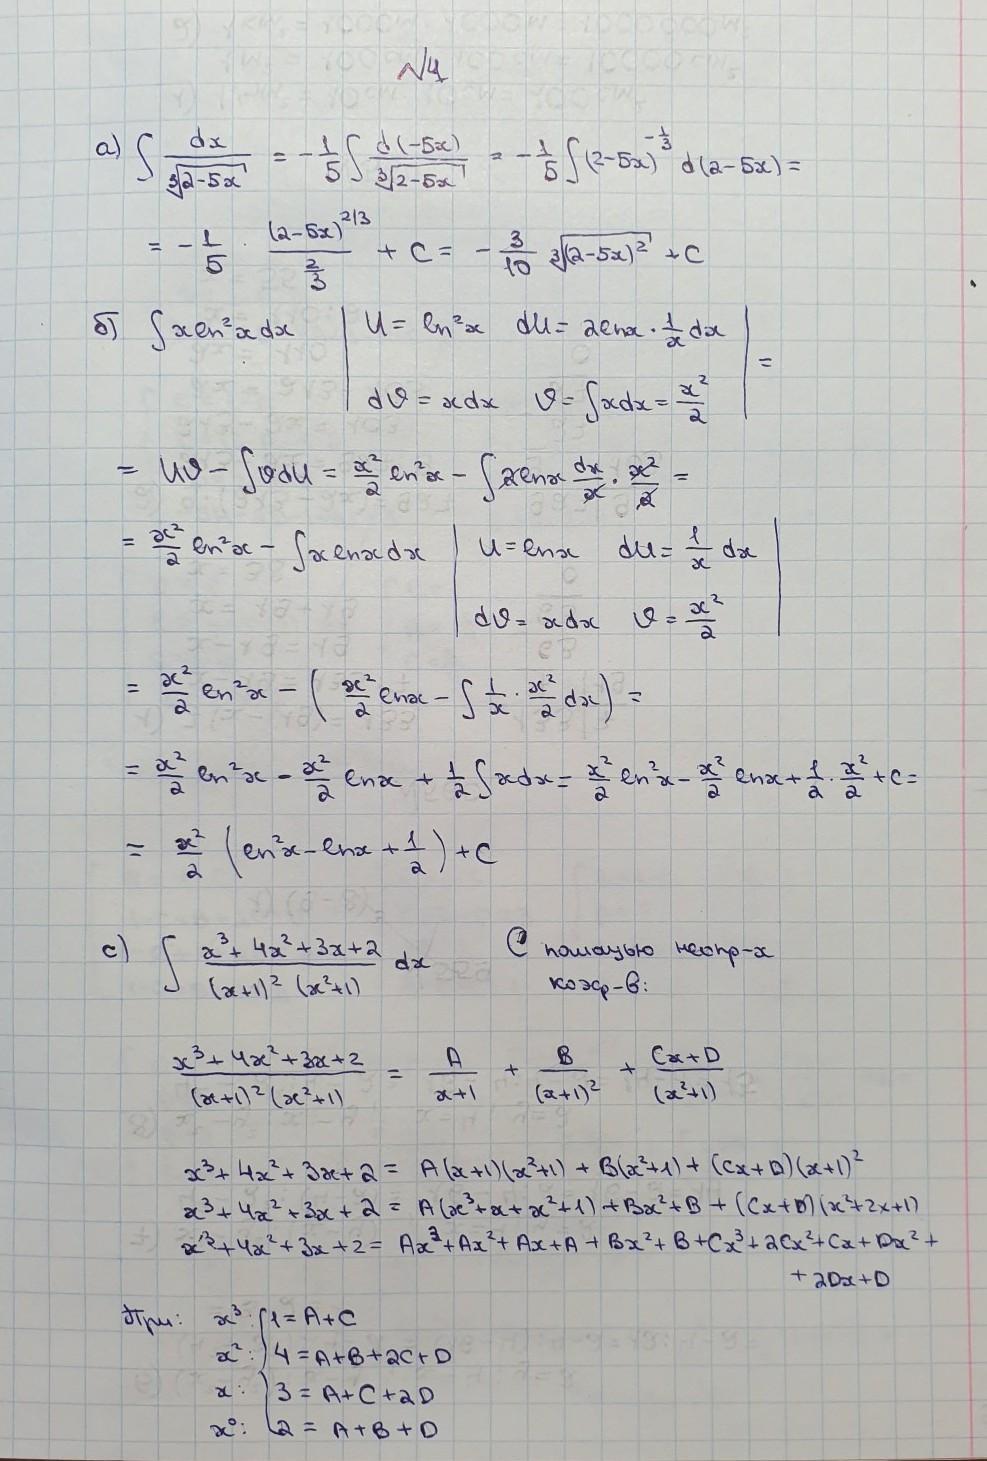 №4
а) ∫ dx/∛(2-5x) = -1/5 ∫ d(-5x)/∛(2-5x) = -1/5 ∫ (2-5x)^(-1/3) d(2-5x) =
= -1/5 · (2-5x)^(2/3)/(2/3) + C = -3/10 ∛((2-5x)²) + C
б) ∫ x ln²x dx | U = ln²x dU = 2lnx · 1/x dx | =
dϑ = xdx ϑ = ∫xdx = x²/2
= Uϑ - ∫ϑdU = x²/2 ln²x - ∫ 2lnx dx/x · x²/2 =
= x²/2 ln²x - ∫ x lnx dx | U = lnx dU = 1/x dx |
dϑ = xdx ϑ = x²/2
= x²/2 ln²x - ( x²/2 lnx - ∫ 1/x · x²/2 dx ) =
= x²/2 ln²x - x²/2 lnx + 1/2 ∫ xdx = x²/2 ln²x - x²/2 lnx + 1/2 · x²/2 + C =
= x²/2 (ln²x - lnx + 1/2) + C
с) ∫ (x³ + 4x² + 3x + 2)/((x+1)² (x²+1)) dx С помощью неопр-х
коэф-в:
(x³ + 4x² + 3x + 2)/((x+1)² (x²+1)) = A/(x+1) + B/(x+1)² + (Cx+D)/(x²+1)
x³ + 4x² + 3x + 2 = A(x+1)(x²+1) + B(x²+1) + (Cx+D)(x+1)²
x³ + 4x² + 3x + 2 = A(x³+x+x²+1) + Bx² + B + (Cx+D)(x²+2x+1)
x³ + 4x² + 3x + 2 = Ax³ + Ax² + Ax + A + Bx² + B + Cx³ + 2Cx² + Cx + Dx² +
+ 2Dx + D
При: x³: { 1 = A + C
x²: 4 = A + B + 2C + D
x: 3 = A + C + 2D
x⁰: 2 = A + B + D